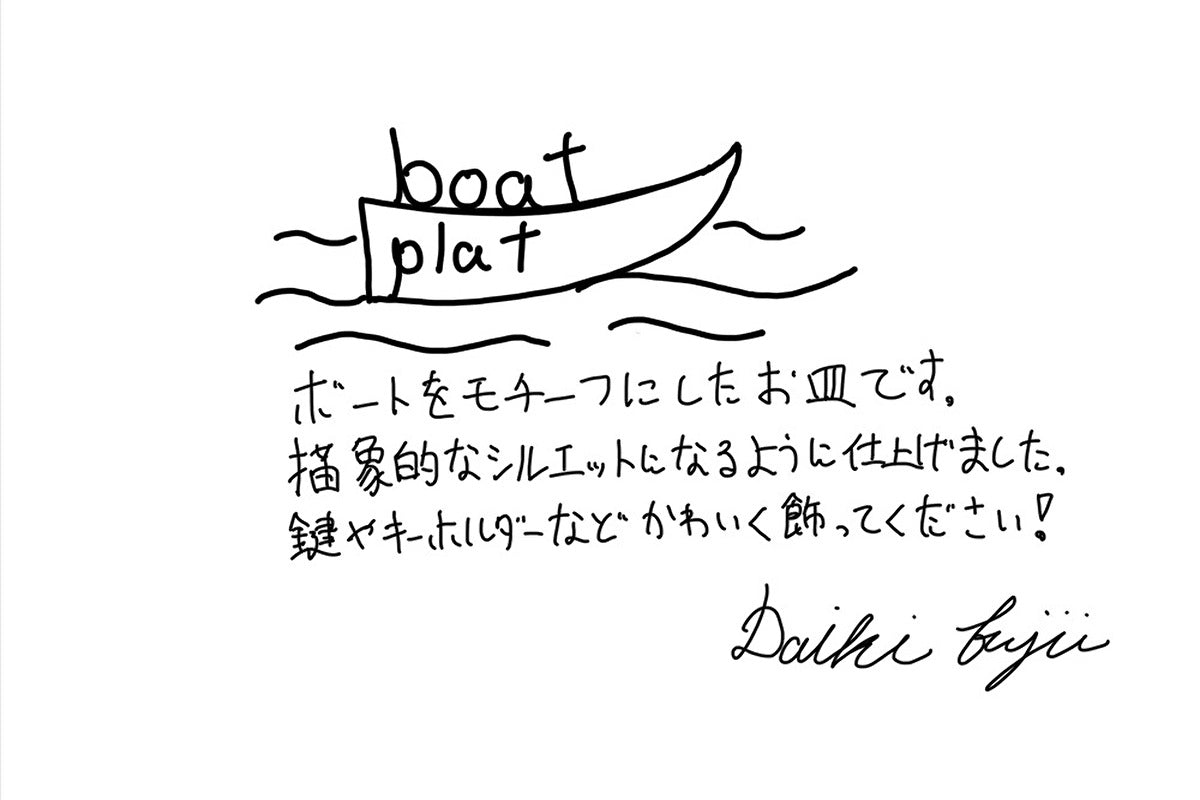 boat
plat
ボートをモチーフにしたお皿です。
描象的なシルエットになるように仕上げました。
鍵やキーホルダーなどかわいく飾ってください!
Daiki Fujii